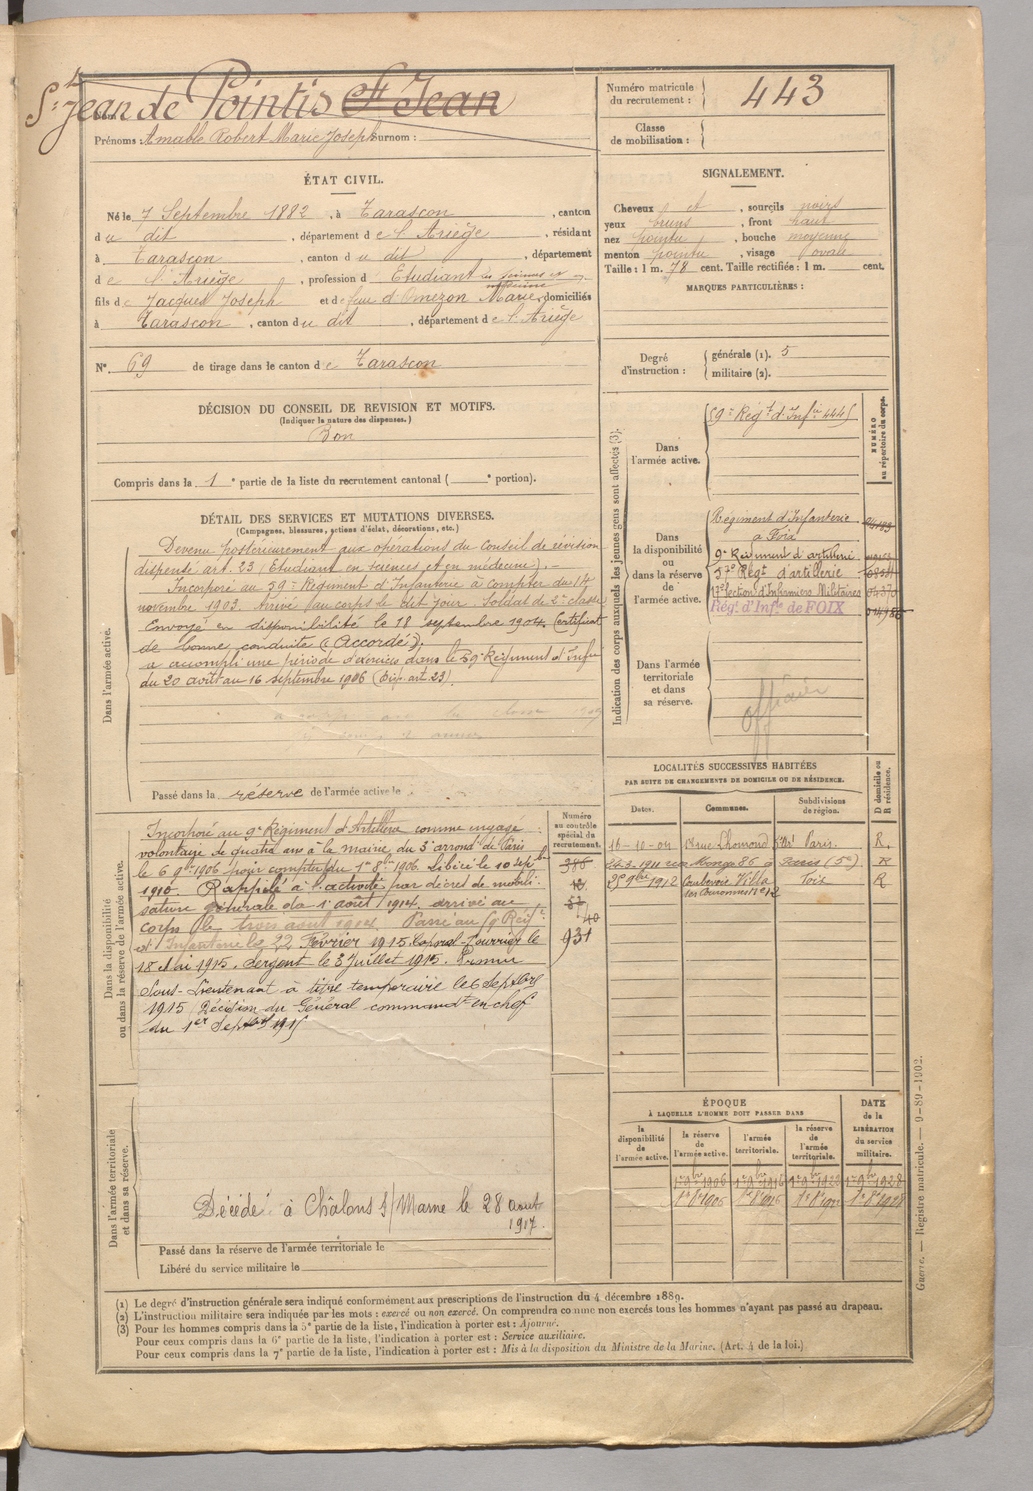 St Jean de Pointis St Jean
Nom :
Prénoms : Amable Robert Marie Joseph Surnom :
Numéro matricule du recrutement : 443
Classe de mobilisation :
ÉTAT CIVIL.
Né le 7 Septembre 1882, à Tarascon, canton
du dit, département de l'Ariège, résidant
à Tarascon, canton du dit, département
de l'Ariège, profession d'Etudiant en sciences et en médecine
fils de Jacques Joseph et de feue d'Omezon Marie, domiciliés
à Tarascon, canton du dit, département de l'Ariège
N° 69 de tirage dans le canton de Tarascon
SIGNALEMENT.
Cheveux et, sourcils noirs
yeux bruns, front haut
nez pointu, bouche moyenne
menton pointu, visage ovale
Taille : 1 m. 78 cent. Taille rectifiée : 1 m. cent.
MARQUES PARTICULIÈRES :
Degré d'instruction : générale (1). 5
militaire (2).
DÉCISION DU CONSEIL DE REVISION ET MOTIFS.
(Indiquer la nature des dispenses.)
Bon
Compris dans la 1e partie de la liste du recrutement cantonal ( e portion).
DÉTAIL DES SERVICES ET MUTATIONS DIVERSES.
(Campagnes, blessures, actions d'éclat, décorations, etc.)
Dans l'armée active.
Devenu postérieurement aux opérations du conseil de révision
dispensé art. 23 (Etudiant en sciences et en médecine). -
Incorporé au 59e Régiment d'Infanterie à compter du 14
novembre 1903. Arrivé au corps le dit jour. Soldat de 2e classe
Envoyé en disponibilité le 18 septembre 1904. Certificat
de bonne conduite "Accordé".
a accompli une période d'exercices dans le 59e Régiment d'Infie
du 20 août au 16 septembre 1906 (Disp. art 23).
Passé dans la réserve de l'armée active le
Dans la disponibilité ou dans la réserve de l'armée active.
Incorporé au 9e Régiment d'Artillerie comme engagé
volontaire de quatre ans à la mairie du 3e arrondt de Paris
le 6 9bre 1906 pour compter du 1er 8bre 1906. Libéré le 10 septbre
1910. Rappelé à l'activité par décret de mobili-
sation générale du 1er août 1914, arrivé au
corps le trois aout 1914. Passé au 59 Régt
d'Infanterie le 22 Février 1915. Caporal-Fourrier le
18 Mai 1915. Sergent le 3 Juillet 1915. Promu
Sous-Lieutenant à titre temporaire le 6 Septbre
1915 (Décision du Général commandt en chef
du 1er Septbre 1915
Numéro au contrôle spécial du recrutement.
386
12
57
40
931
Dans l'armée territoriale et dans sa réserve.
Décédé à Châlons s/ Marne le 28 aout
1917.
Passé dans la réserve de l'armée territoriale le
Libéré du service militaire le
Indication des corps auxquels les jeunes gens sont affectés (3).
NUMÉRO au répertoire du corps.
Dans l'armée active.
59e Régt d'Infie 4445
Dans la disponibilité ou dans la réserve de l'armée active.
Régiment d'Infanterie
à Foix
9e Régiment d'artillerie
57e Régt d'artillerie
17e Section d'Infirmiers Militaires
Régt d'Infie de FOIX
Dans l'armée territoriale et dans sa réserve.
officier
LOCALITÉS SUCCESSIVES HABITÉES
PAR SUITE DE CHANGEMENTS DE DOMICILE OU DE RÉSIDENCE.
Dates. Communes. Subdivisions de région. D domicile ou R résidence.
16-10-04 rue Lhomond Paris. R.
24.3.1911 rue Monge 86 à Paris (5e) R
25 9bre 1912 Courbevoie Villa Foix R
les Couronnes N° 12
ÉPOQUE
À LAQUELLE L'HOMME DOIT PASSER DANS
la disponibilité de l'armée active. la réserve de l'armée active. l'armée territoriale. la réserve de l'armée territoriale. DATE de la LIBÉRATION du service militaire.
1er 9bre 1906 1er 9bre 1916 1er 9bre 1922 1er 9bre 1928
1er 8bre 1906 1er 8bre 1916 1er 8bre 1922 1er 8bre 1928
(1) Le degré d'instruction générale sera indiqué conformément aux prescriptions de l'instruction du 4 décembre 1889.
(2) L'instruction militaire sera indiquée par les mots : exercé ou non exercé. On comprendra comme non exercés tous les hommes n'ayant pas passé au drapeau.
(3) Pour les hommes compris dans la 5e partie de la liste, l'indication à porter est : Ajourné.
Pour ceux compris dans la 6e partie de la liste, l'indication à porter est : Service auxiliaire.
Pour ceux compris dans la 7e partie de la liste, l'indication à porter est : Mis à la disposition du Ministre de la Marine. (Art. 4 de la loi.)
Guerre. — Registre matricule. — 9-89-1902.